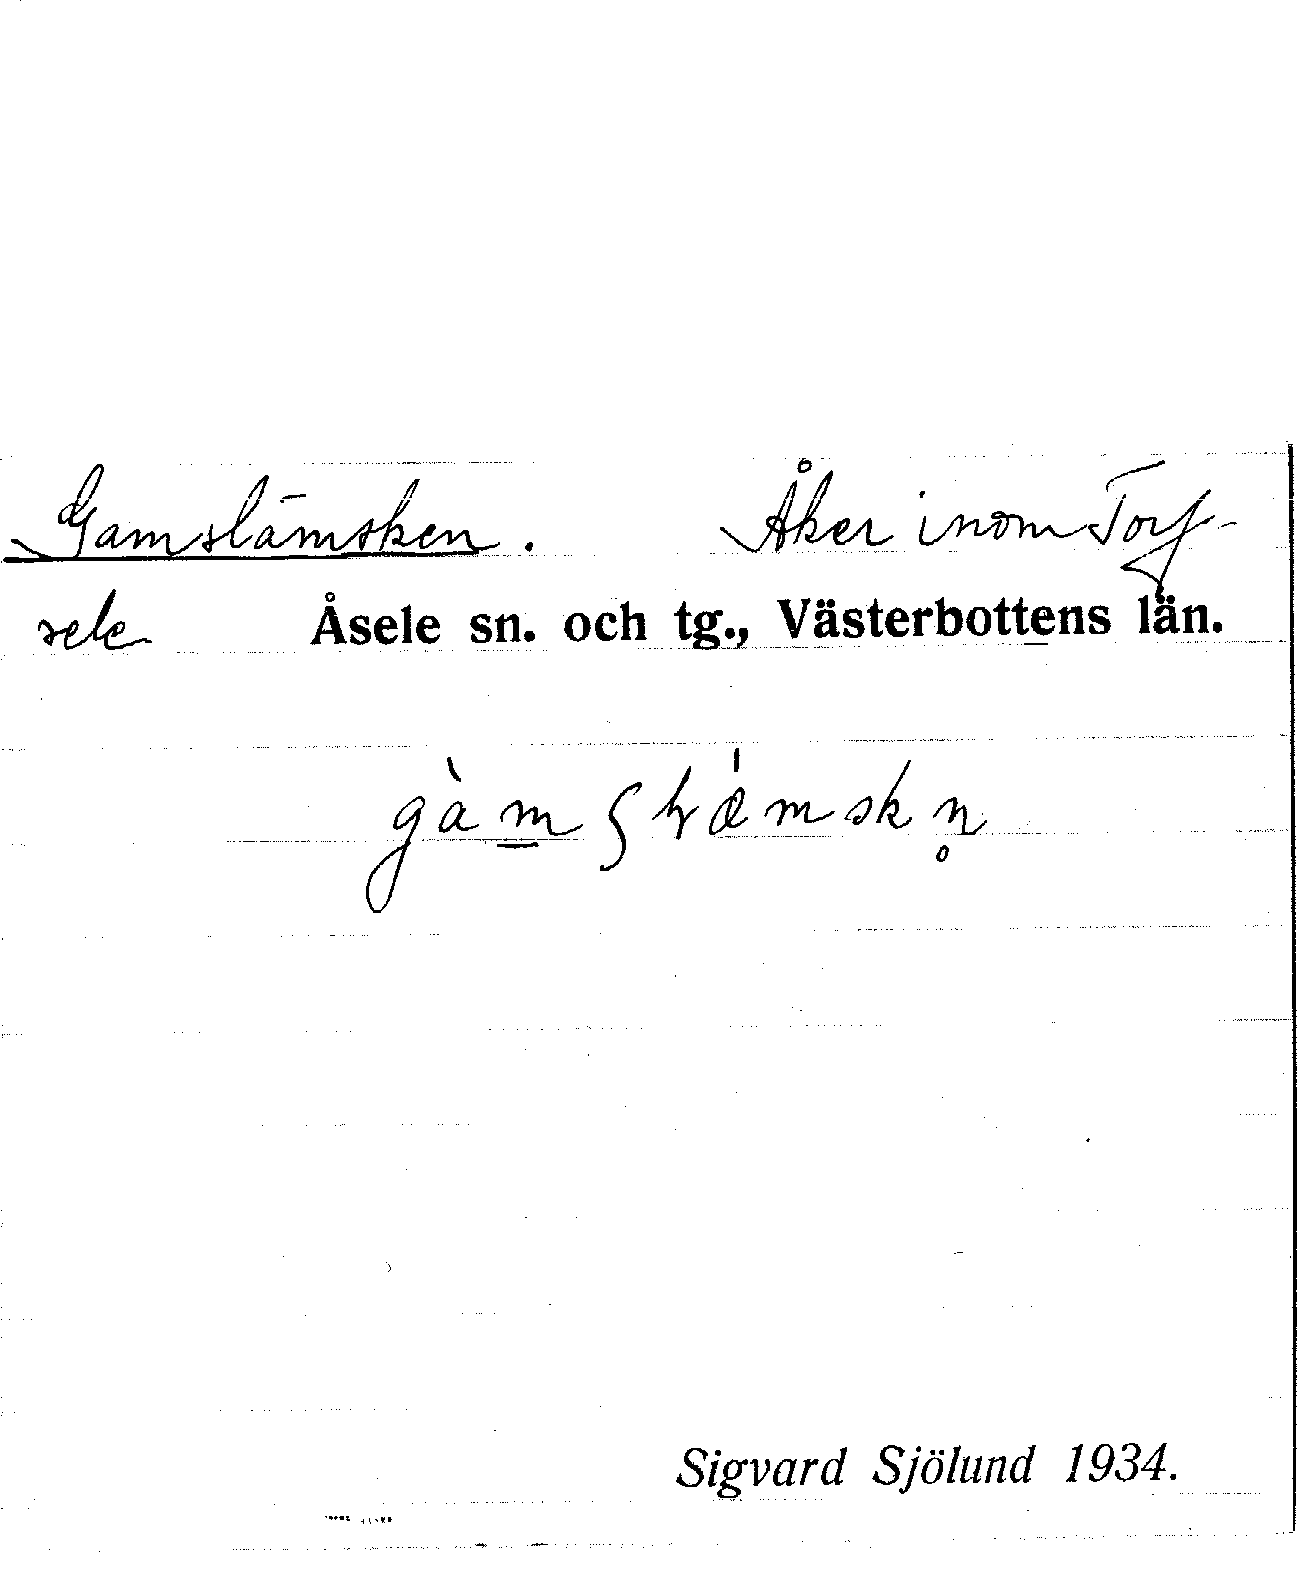 Gamslämsken. Åker inom Torf-
sele Åsele sn. och tg., Västerbottens län.
Sigvard Sjölund 1934.